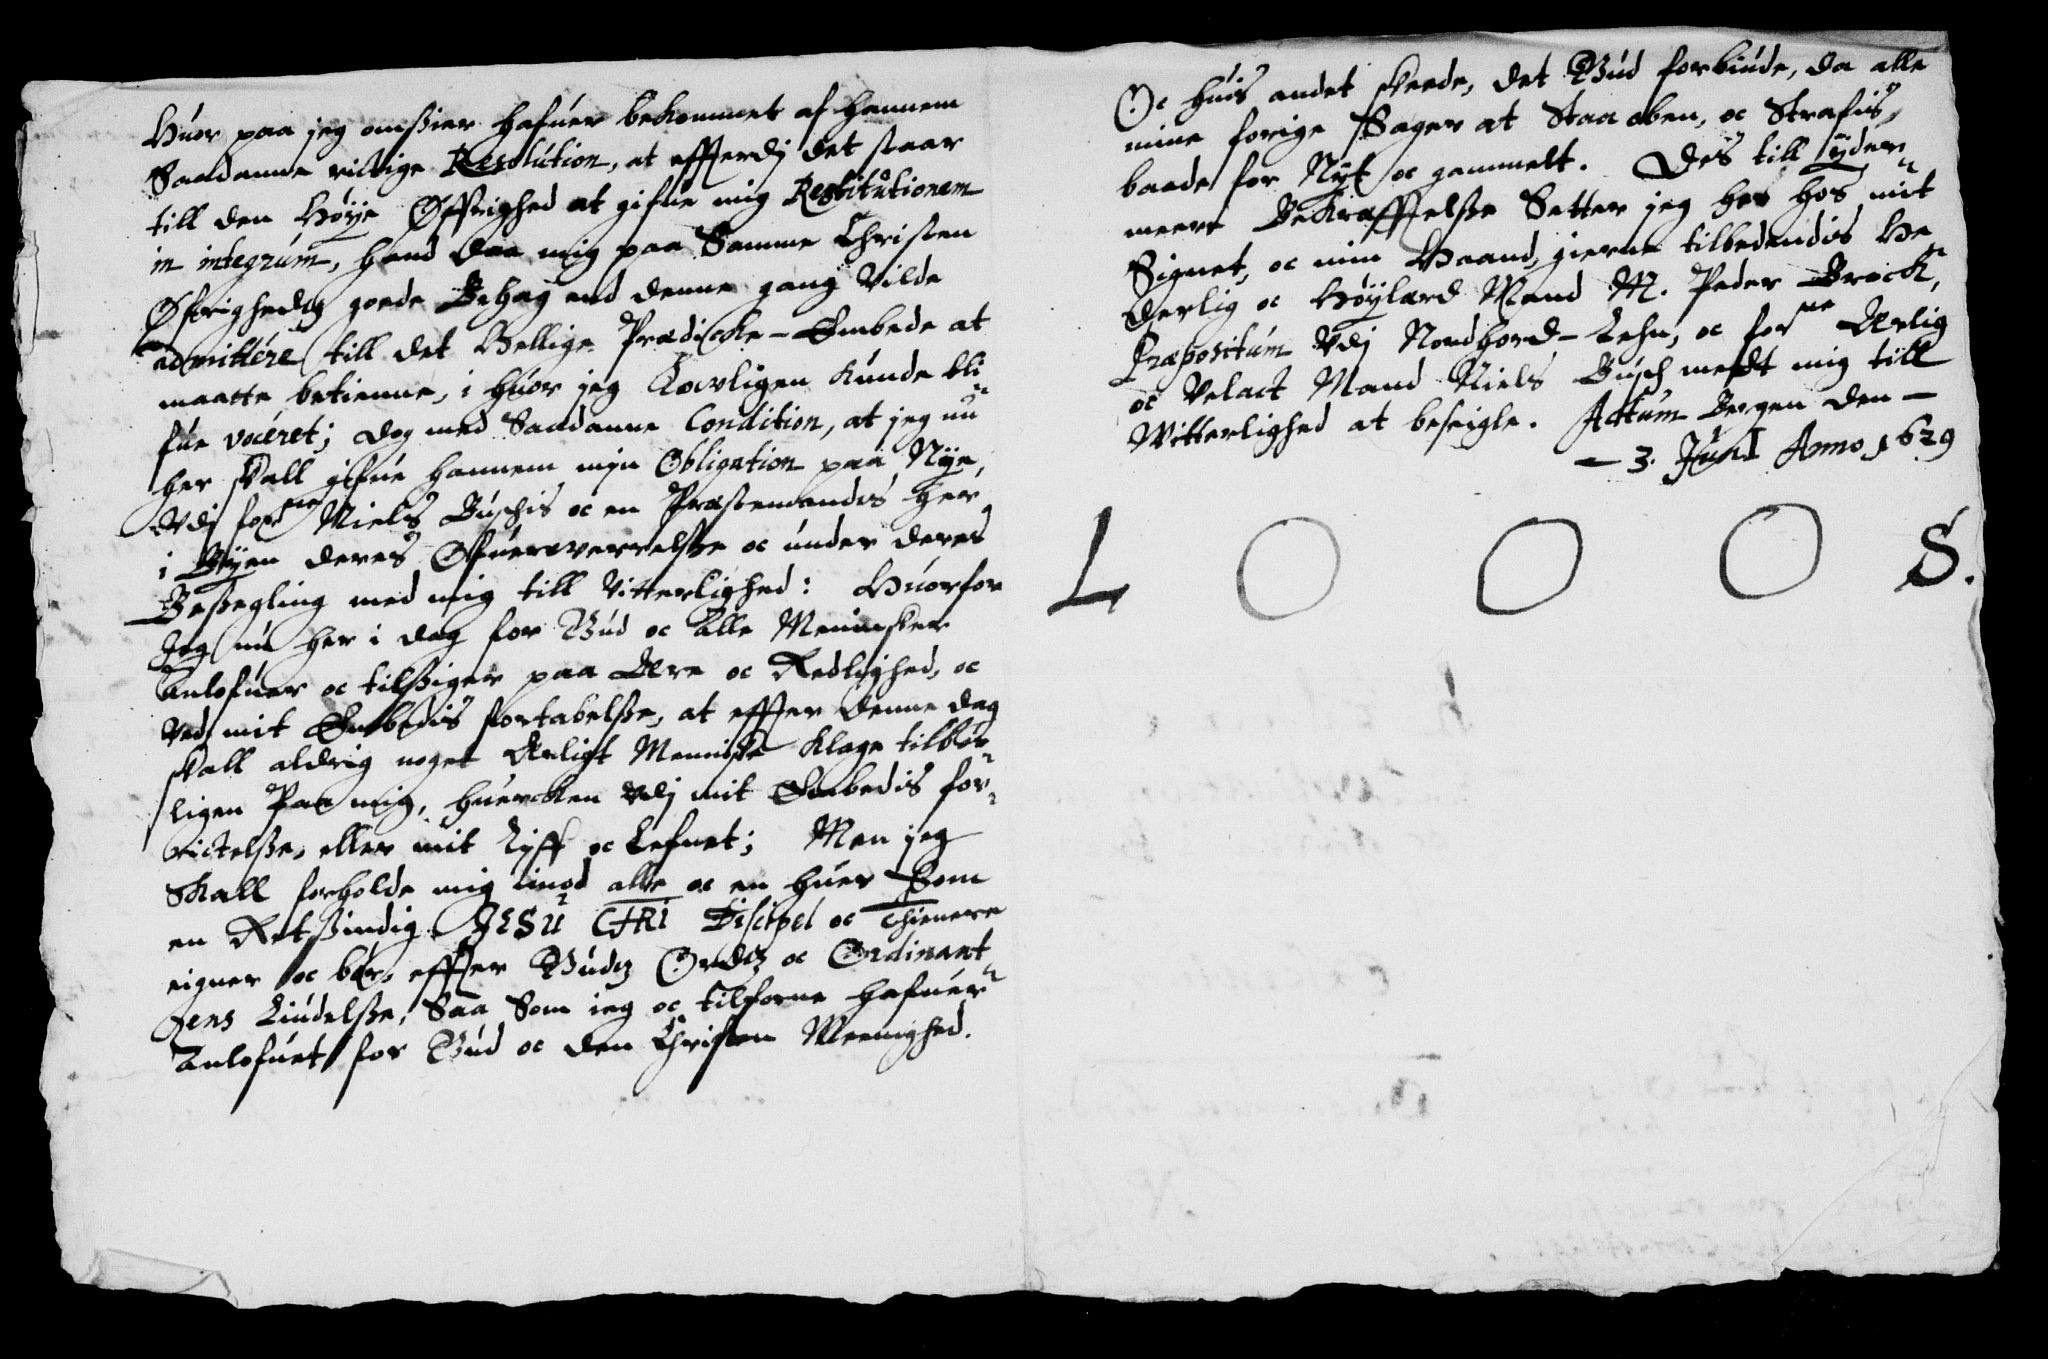 Huor paa jeg omsier hafuer bekommet af hannem
Saadanne rictige Resolution, at effterdj det staar
till den Høÿe Øffrighed at gifue mig Restitutionem
in integrum, hand daa mig paa Samme Christen
Øfrighedz goede Behag end denne gang Vilde
admittére till det Hellige Prædicke-Embede at
maatte betienne, i huor jeg Lovligen Kunde bli¬
fue voceret; dog med Saadanne Condition, at jeg nu
her skall gifue hannem mjn Obligation paa Nÿe,
Vdj forne Niels Buschis oc en Præstemandis her
i Bÿen deres Ofueruerrelsse oc under deres
Besegling med mig till Vitterlighed: Huorfor
Jeg nu her i dag for Gud oc alle Mennisker
Anlofuer oc tilsiger paa Ære oc Redlighed, oc
Ved mit Embedis fortabelsse, at effter denne dag
skall aldrig noget Ærligt Menniske Klage tilbør¬
ligen Paa mig, huercken Vdj mit Embedis for¬
rictelsse, eller mit Lyff oc Lefnet; Men jeg
Skall forholde mig imod alle oc en huer Som
en Retsindig JESU CHRI Discipel oc Thienere
eigner oc bør, effter Gudz Ordz oc Ordinant¬
zens Liudelsse, Saa Som ieg oc tilforne hafuer
Anlofuet for Gud oc den Christen Meenighed.
Oc huis andet skeede, det Gud forbiude, da alle
mine forige Sager at Staa oben, oc Strafis
baade for Nÿt oc gammelt. Des till ÿder¬
meere Bekræfftelsse Setter jeg her hos mit
Signet, oc min Haand, gierne tilbedendis He¬
derlig oc Høÿlærd Mand M. Peder Brock,
Præpositum Vdj Nordhord-Lehn, oc forne Ærlig
oc Velact Mand Niels Busch medt mig till
Witterlighed at beseigle. Actum Bergen den —
— 3. Junj Anno 1629
L O O O S.